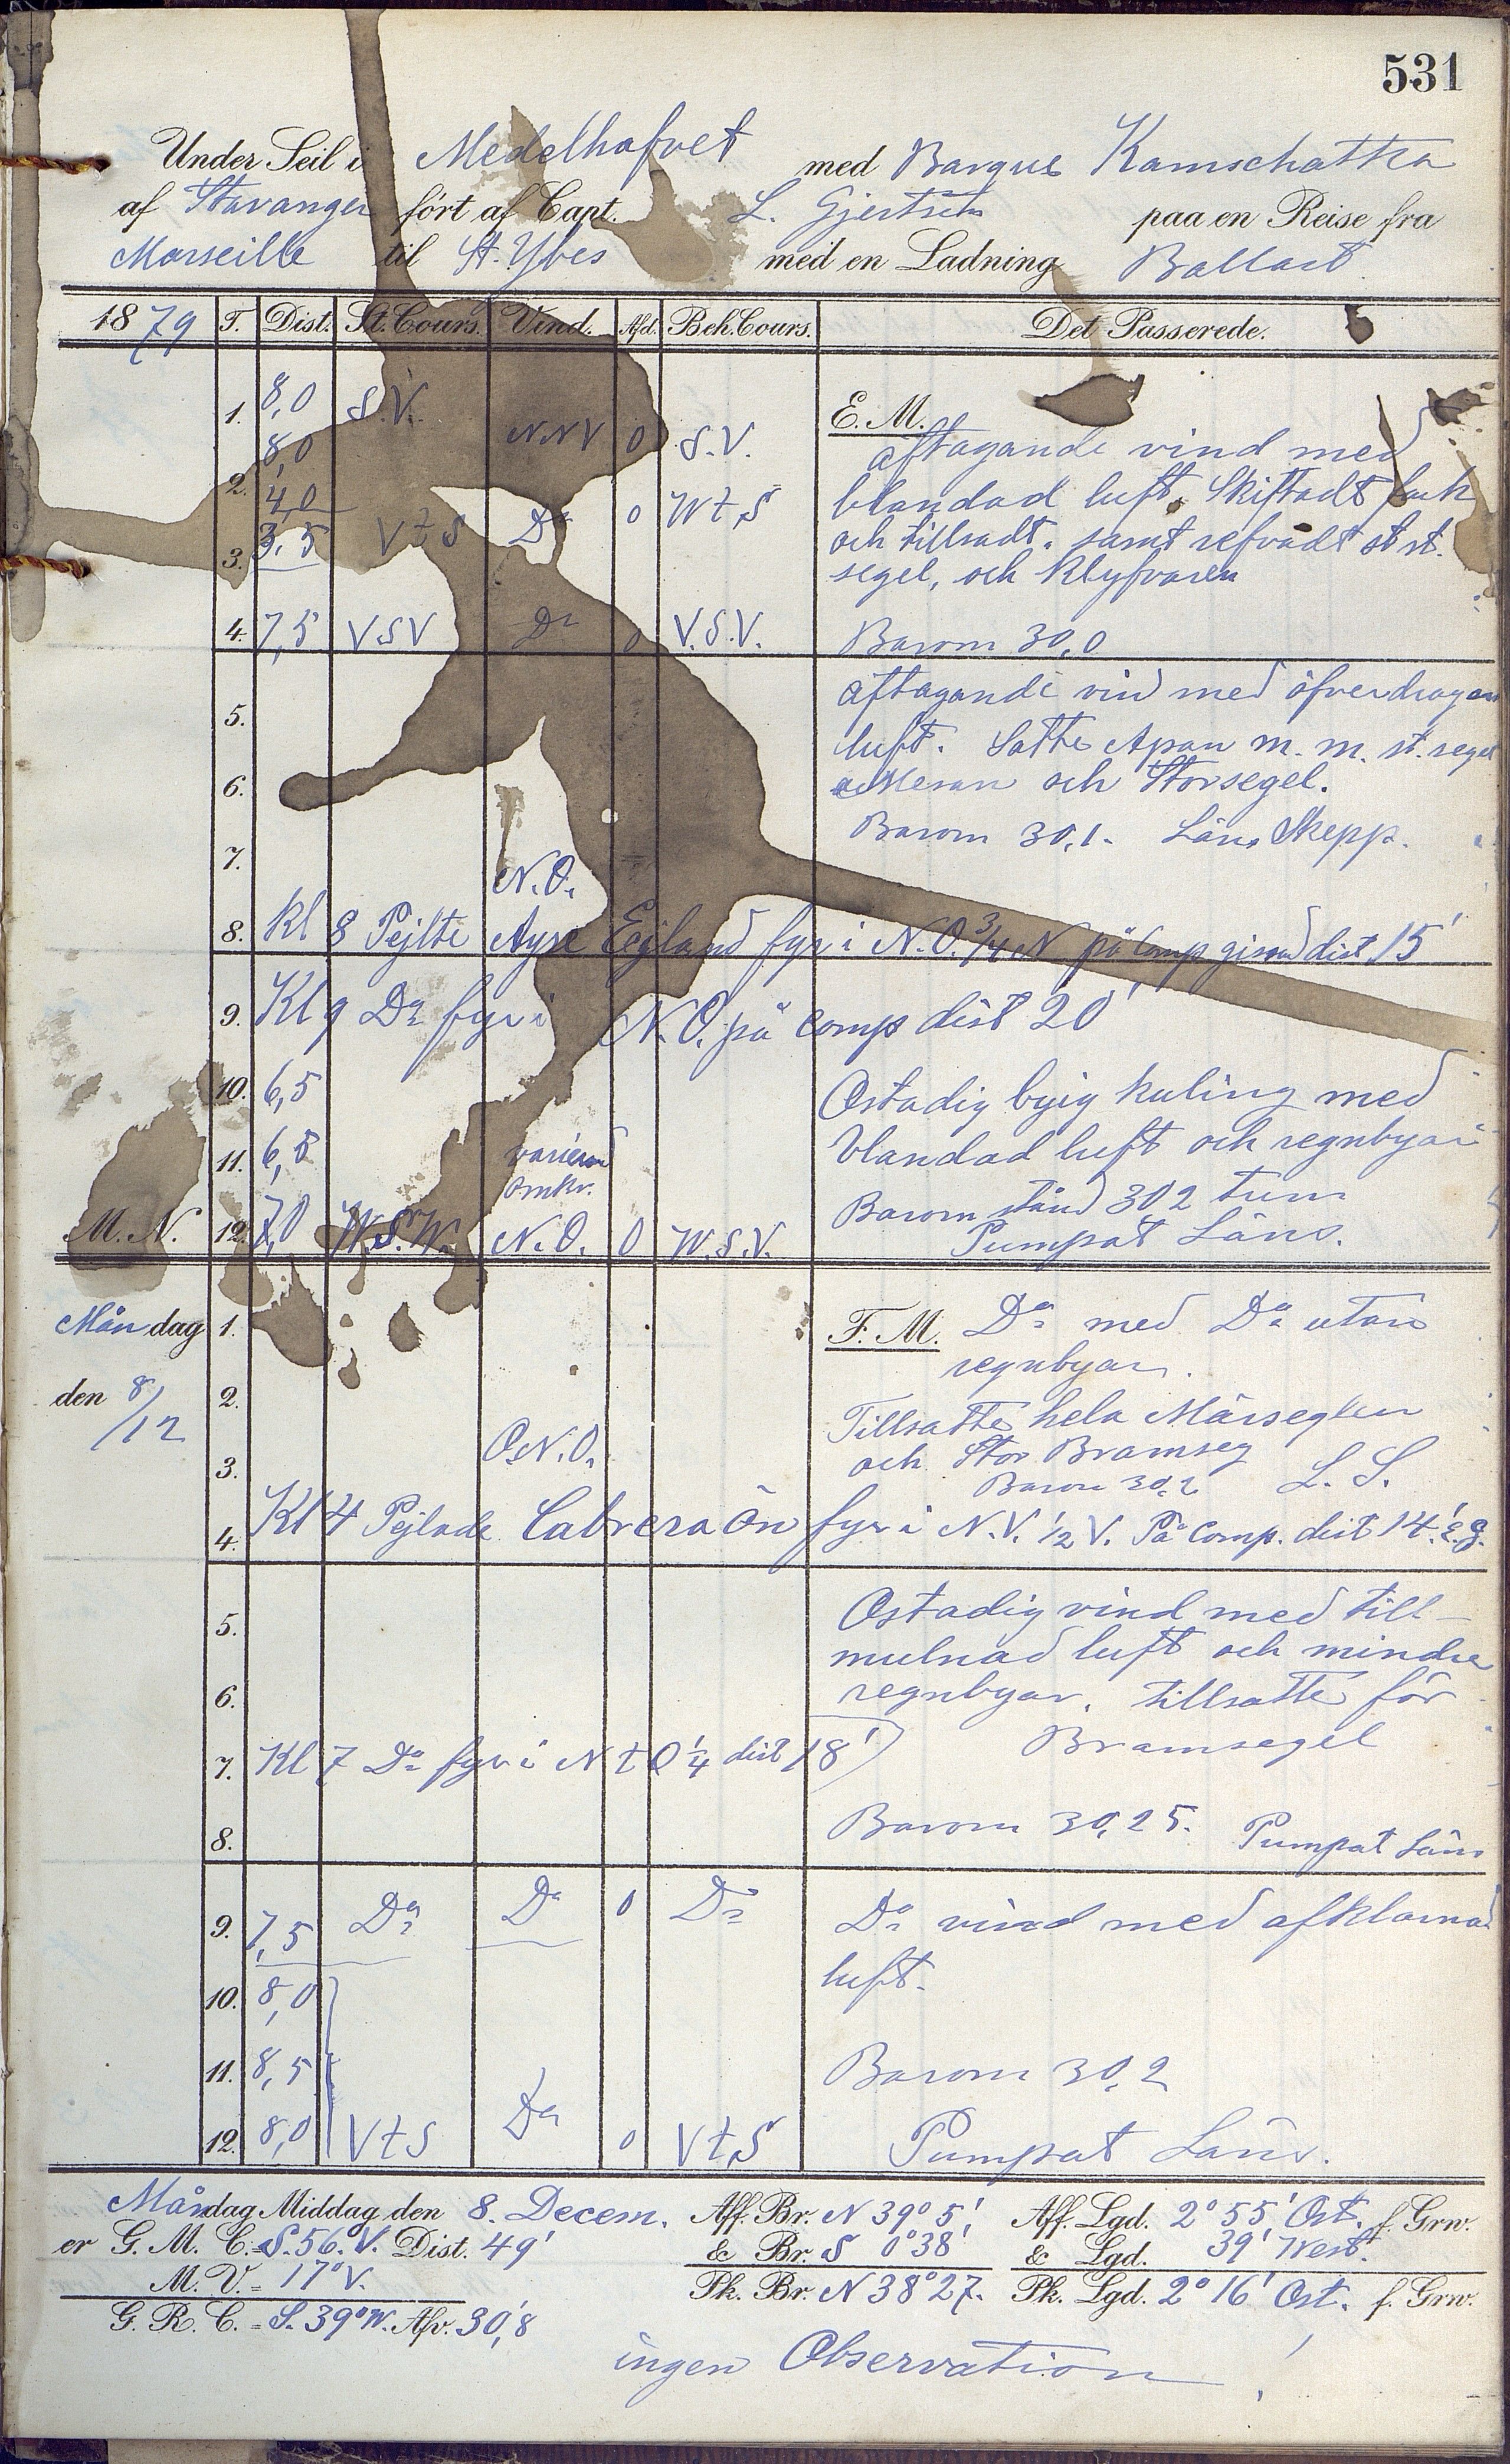 531
Under Seil i Medelhafvet med Barque Kamschatka
af Stavanger fört af Capt. L. Gjertsen paa en Reise fra
Marseille til St. Ybes med en Ladning Ballast
1879 T. Dist. St. Cours. Vind. Afd. Beh. Cours. Det Passerede.
E. M.
1. 8,0 S.V.
aftagande vind med
2. 8,0 N N V 0 S.V.
blandad luft. Skiftadt fock
4,0
3. 3,5 V t S Do 0 W t S
och tillsadt. samt refvadt st st.
segel, och Klyfvaren
4. 7,5 V S V Do 0 V.S.V. Barom 30,0
5. aftagande vind med öfverdragen
luft. Satte Apan m. m. st. segel
6. Mesan och Storsegel.
Barom 30,1. Läns Skepp.
7. N.O.
8. Kl 8 Pejlte Eyland fyr i N.O. 3/4 N på Comp gissad dist 15'
9. Kl 9 Do fyr i N.O. på comp dist 20'
10. 6,5 Ostadig byig kuling med
11. 6,8 varierand blandad luft och regnbyar
omkr. Barom stånd 302 tum
M. N. 12. 7,0 W.S.W. N.O. 0 W.S.V. Pumpat Läns.
Måndag 1. F. M. Do med Do utan
regnbyar.
den 8/12 2. Tillsatte hela Märseglen
3. O.N.O. och Stor Bramseg
Barom 30,2 L. S.
4. Kl 4 Pejlade Cabrera Ön fyr i N.V. 1/2 V. På Comp. dist 14' E. g.
5. Ostadig vind med till-
mulnad luft och mindre
6. regnbyar. tillsatte för
Bramsegel
7. Kl 7 Do fyr i N t O 1/4 dist 18'
8. Barom 30,25. Pumpat Läns
9. 7,5 Do Do 0 Do Do vind med afklarnad
10. 8,0 luft.
11. 8,5 Barom 30,2
12. 8,0 V t S Do 0 V t S Pumpat Läns.
Måndag Middag den 8. Decem. Aff. Br. N 39° 5' Aff. Lgd. 2° 55' Ost. f. Grw.
er G. M. C. = S. 56. V. Dist. 49' & Br. S 0° 38' & Lgd. 39' West.
M. V. = 17° V. Pk. Br. N 38° 27. Pk. Lgd. 2° 16' Ost. f. Grw.
G. R. C. = S. 39° W. Afv. 30,8
ingen Observation !